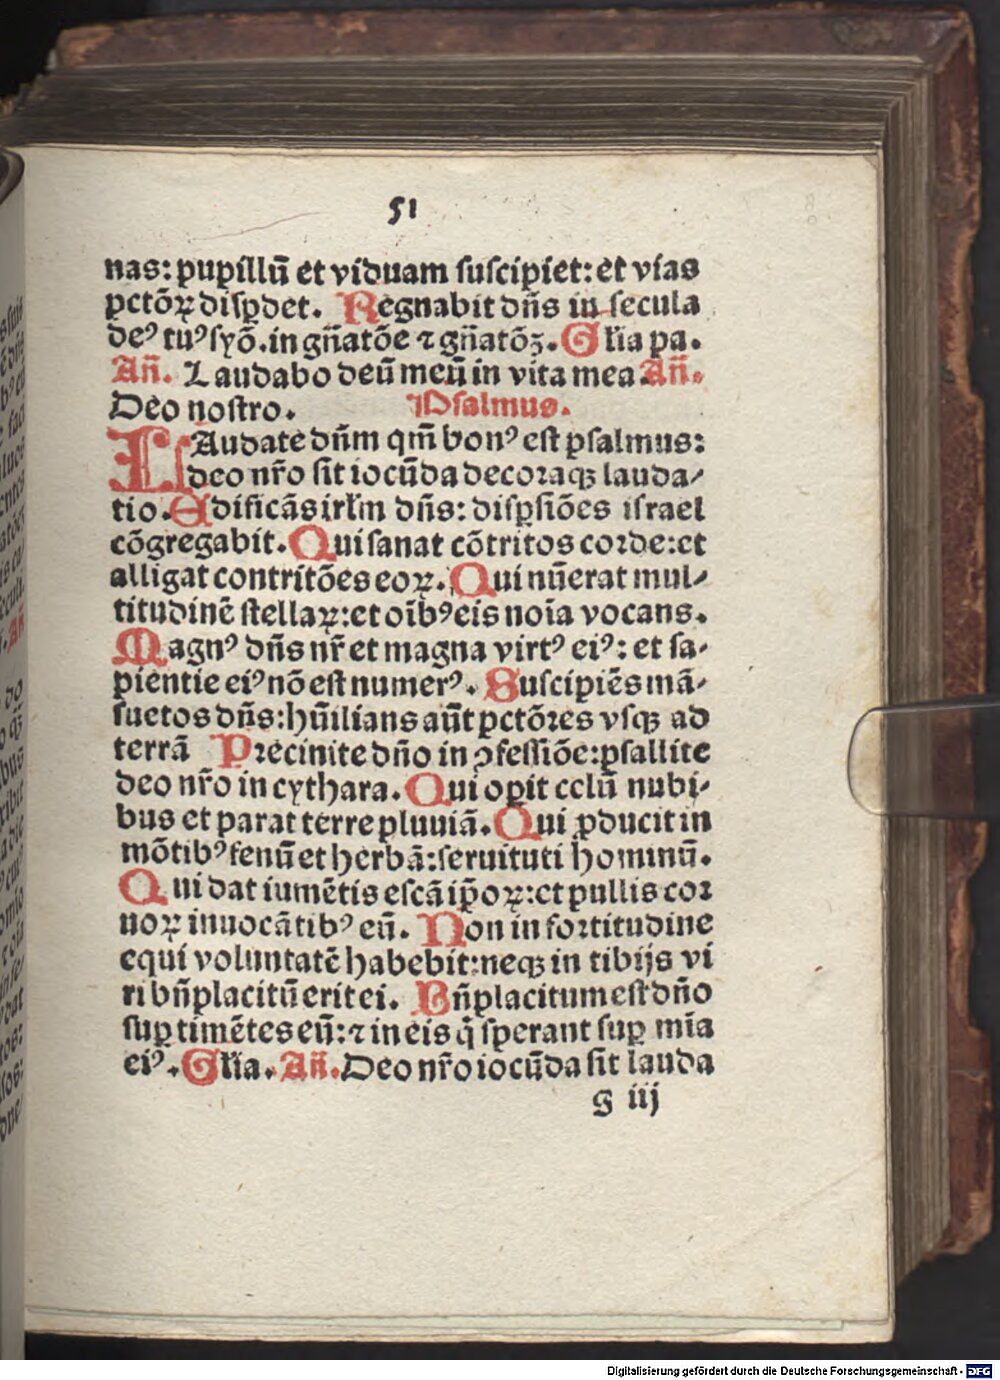 51
nas: pupillū et viduam suscipiet: et vias
pctōꝝ disꝑdet. Regnabit dn̄s in secula
deꝰ tuꝰ syō. in gn̄atōe ⁊ gn̄atōꝫ. Glīa pa.
An̄. Laudabo deū meū in vita mea An̄.
Deo nostro. Psalmus.
LAudate dn̄m qm̄ bonꝰ est psalmus:
deo nr̄o sit iocūda decoraqꝫ lauda-
tio. Edificās irl̄m dn̄s: disꝑsiōes israel
cōgregabit. Qui sanat cōtritos corde: et
alligat contritōes eoꝝ. Qui nūerat mul-
titudinē stellaꝝ: et oīb⁹ eis noīa vocans.
Magnꝰ dn̄s nr̄ et magna virtꝰ eiꝰ: et sa-
pientie eiꝰ nō est numerꝰ. Suscipiēs mā-
suetos dn̄s: hūilians aūt pctōres vsqꝫ ad
terrā Precinite dn̄o in ꝯfessiōe: psallite
deo nr̄o in cythara. Qui oꝑit celū nubi-
bus et parat terre pluuiā. Qui ꝓducit in
mōtibꝰ fenū et herbā: seruituti hominū.
Qui dat iumētis escā ip̄oꝝ: et pullis cor
uoꝝ inuocātibꝰ eū. Non in fortitudine
equi voluntatē habebit: neqꝫ in tibijs vi
ri bn̄placitū erit ei. Bn̄placitum est dn̄o
suꝑ timētes eū: ⁊ in eis q̄ sperant suꝑ mīa
eiꝰ. Glīa. An̄. Deo nr̄o iocūda sit lauda
g iij
Digitalisierung gefördert durch die Deutsche Forschungsgemeinschaft - DFG